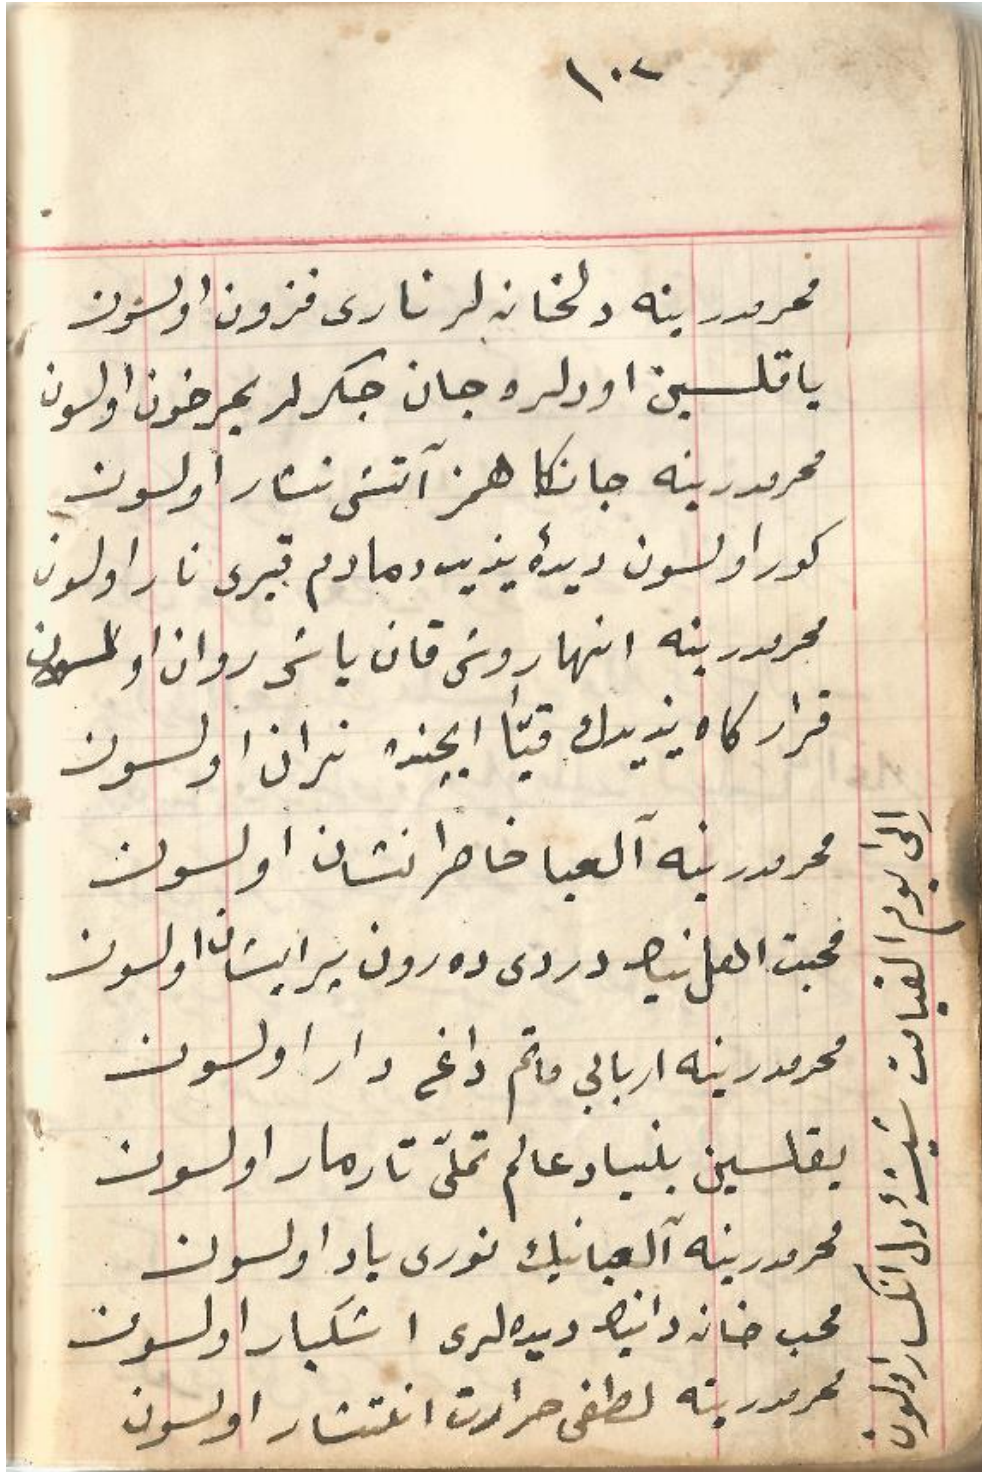 ١٠٢
محرمدر ینه دلخانه‌لر ناری فزون اولسون
یاقلسین اودلره جان جکرلر بحر خون اولسون
محرمدر ینه جانکاهمز آتشی نثار اولسون
کور اولسون دیدهٔ یزید دمادم قبری نار اولسون
محرمدر ینه انهار وش قان یاشی روان اولسون
قرارکاه یزیدك قیّا ایچنده نیران اولسون
محرمدر ینه آلعبا خاطر نشان اولسون
محبت اهلنیڭ دردی ده‌رون پرایشان اولسون
محرمدر ینه اربابی ماتم داغی دار اولسون
یقلسین بنیاد عالم تملّی تارمار اولسون
محرمدر ینه آلعبانیك نوری یاد اولسون
محب خانه‌دانیڭ دیده‌لری اشکبار اولسون
محرمدر ینه لطفی حرارت انتشار اولسون
الی یوم القیامت شیشهٔ دل انکسار اولسون